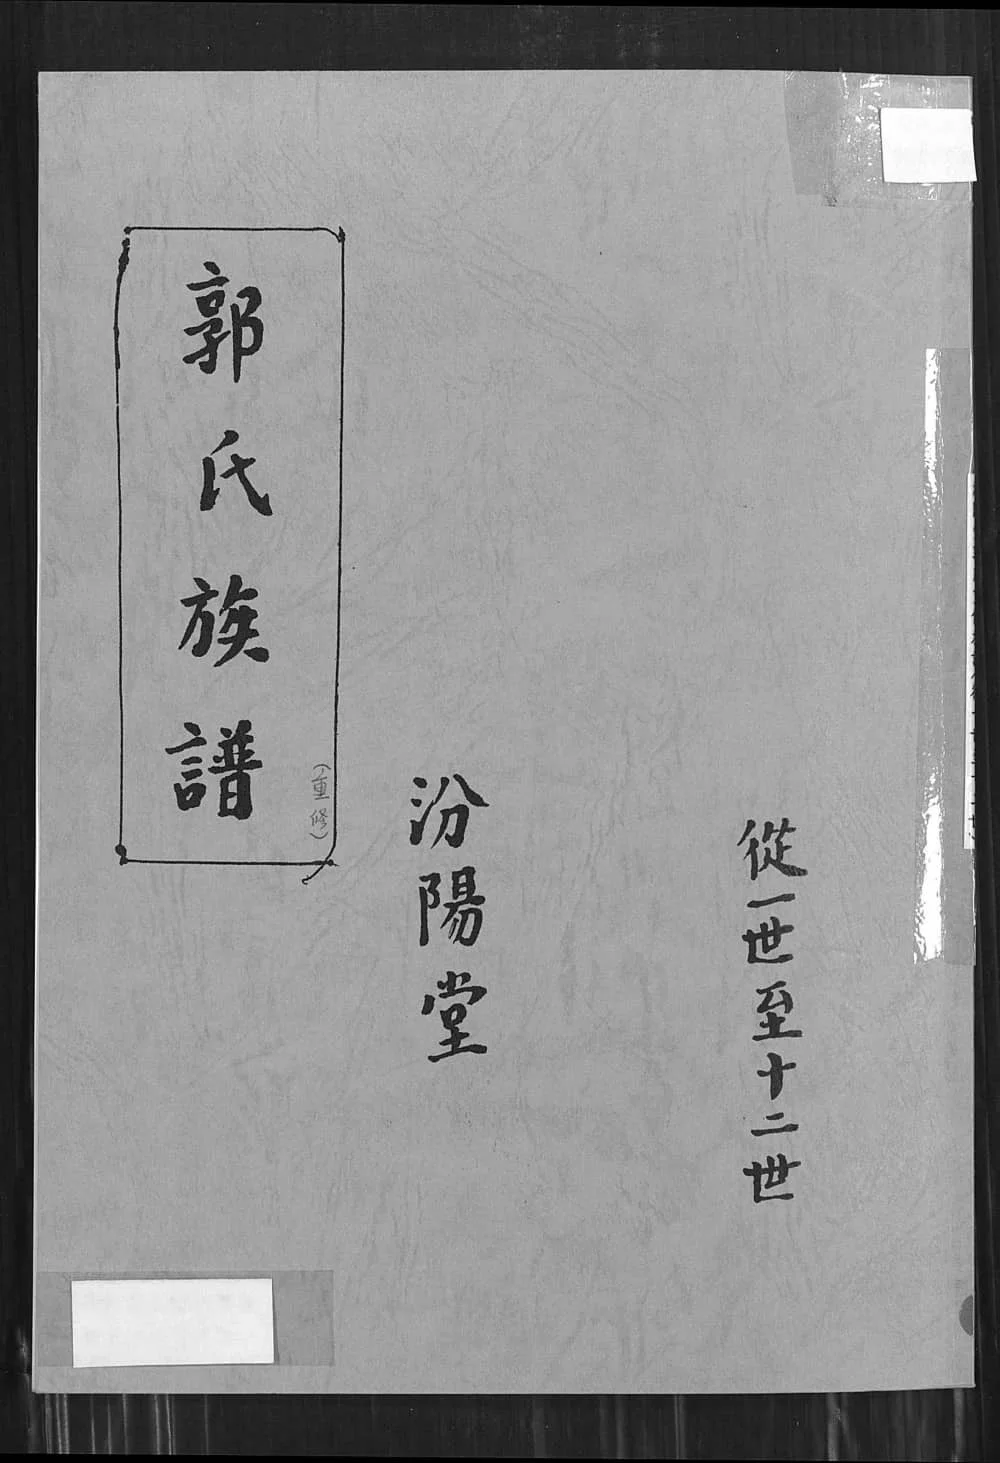 從一世至十二世
汾陽堂
郭氏族譜
(重修)